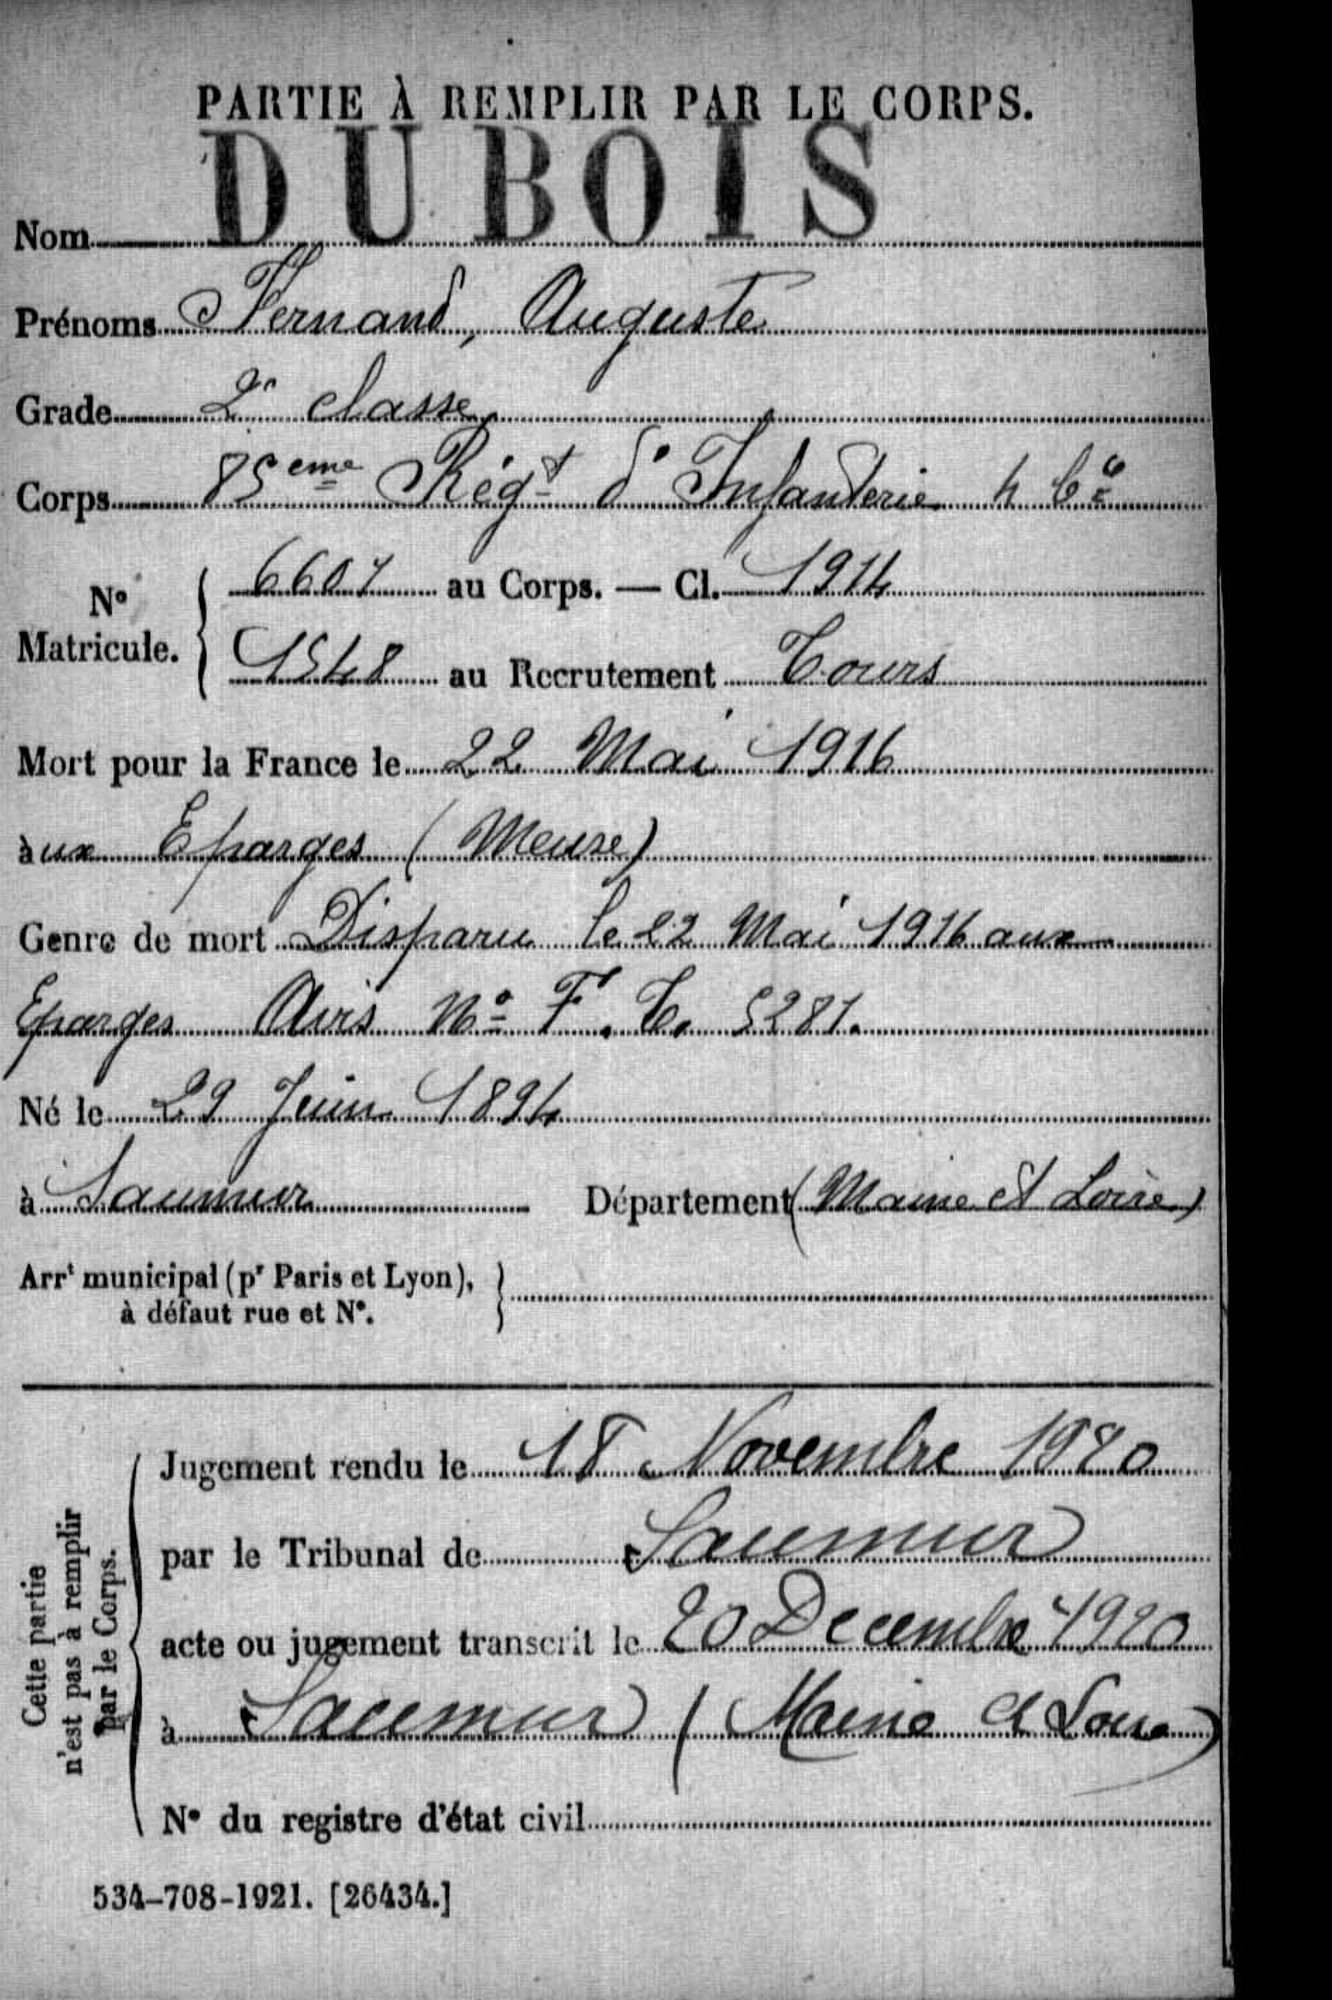 PARTIE À REMPLIR PAR LE CORPS.
Nom DUBOIS
Prénoms Fernand, Auguste
Grade 2e classe
Corps 85eme Régt d'Infanterie 4 Cie
N° Matricule. 6607 au Corps. — Cl. 1914
1548 au Recrutement Tours
Mort pour la France le 22 Mai 1916
aux Eparges (Meuse)
Genre de mort Disparu le 22 Mai 1916 aux
Eparges Avis No F. C. 5281.
Né le 29 Juin 1894
à Saumur Département (Maine et Loire)
Arrt municipal (pr Paris et Lyon),
à défaut rue et N°.
Cette partie
n'est pas à remplir
par le Corps.
Jugement rendu le 18 Novembre 1920
par le Tribunal de Saumur
acte ou jugement transcrit le 20 Decembre 1920
à Saumur (Maine et Loire)
N° du registre d'état civil
534-708-1921. [26434.]